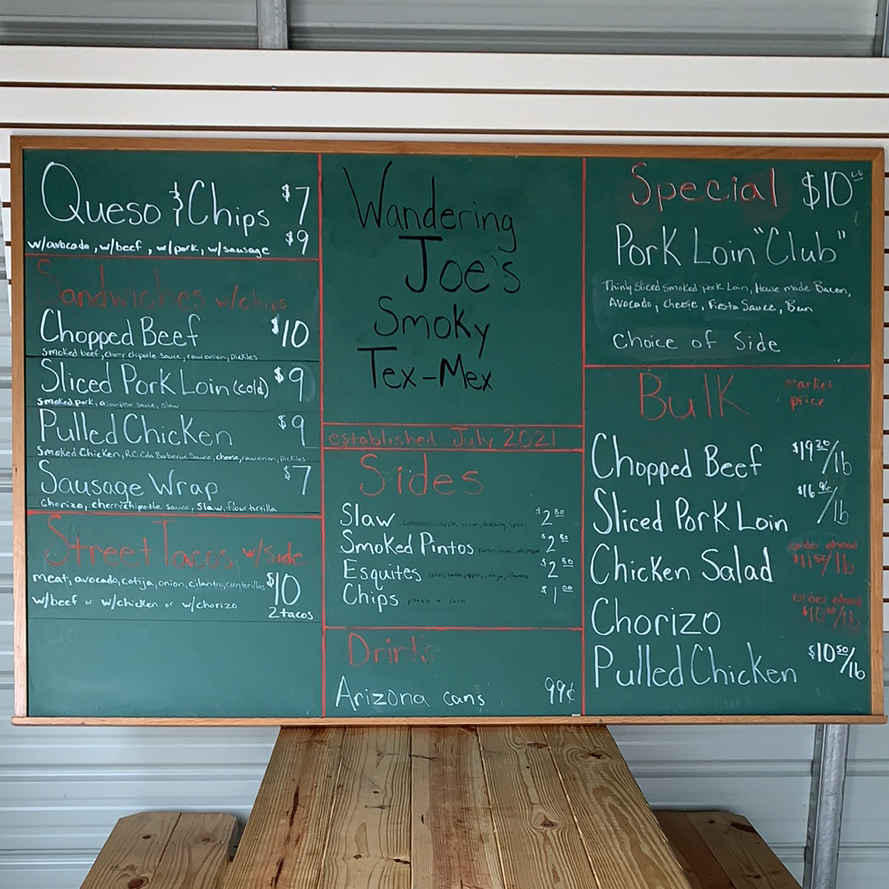 Queso & Chips $7
w/avocado, w/beef, w/pork, w/sausage $9
Sandwiches w/chips
Chopped Beef $10
Smoked beef, cherry chipotle sauce, raw onion, pickles
Sliced Pork Loin (cold) $9
Smoked pork, sauce, slaw
Pulled Chicken $9
Smoked Chicken, R.C. Cola Barbecue Sauce, cheese, raw onion, pickles
Sausage Wrap $7
Chorizo, cherry chipotle sauce, Slaw, flour tortilla
Street Tacos w/side
meat, avocado, cotija, onion, cilantro, corn tortillas $10
w/beef or w/chicken or w/chorizo 2 tacos
Wandering
Joe's
Smoky
Tex-Mex
established July 2021
Sides
Slaw $2.50
Smoked Pintos $2.50
Esquites $2.50
Chips potato or corn $1.00
Drinks
Arizona cans 99¢
Special $10.00
Pork Loin "Club"
Thinly Sliced Smoked pork Loin, House made Bacon,
Avocado, cheese, Fiesta Sauce, Bun
Choice of Side
Bulk market price
Chopped Beef /lb
Sliced Pork Loin /lb
Chicken Salad order ahead /lb
Chorizo order ahead /lb
Pulled Chicken $10.50/lb